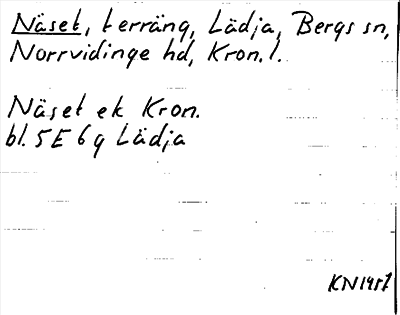 Näset, terräng, Lädja, Bergs sn,
Norrvidinge hd, Kron. l.
Näset ek Kron.
bl. 5E 6g Lädja
KN 1957